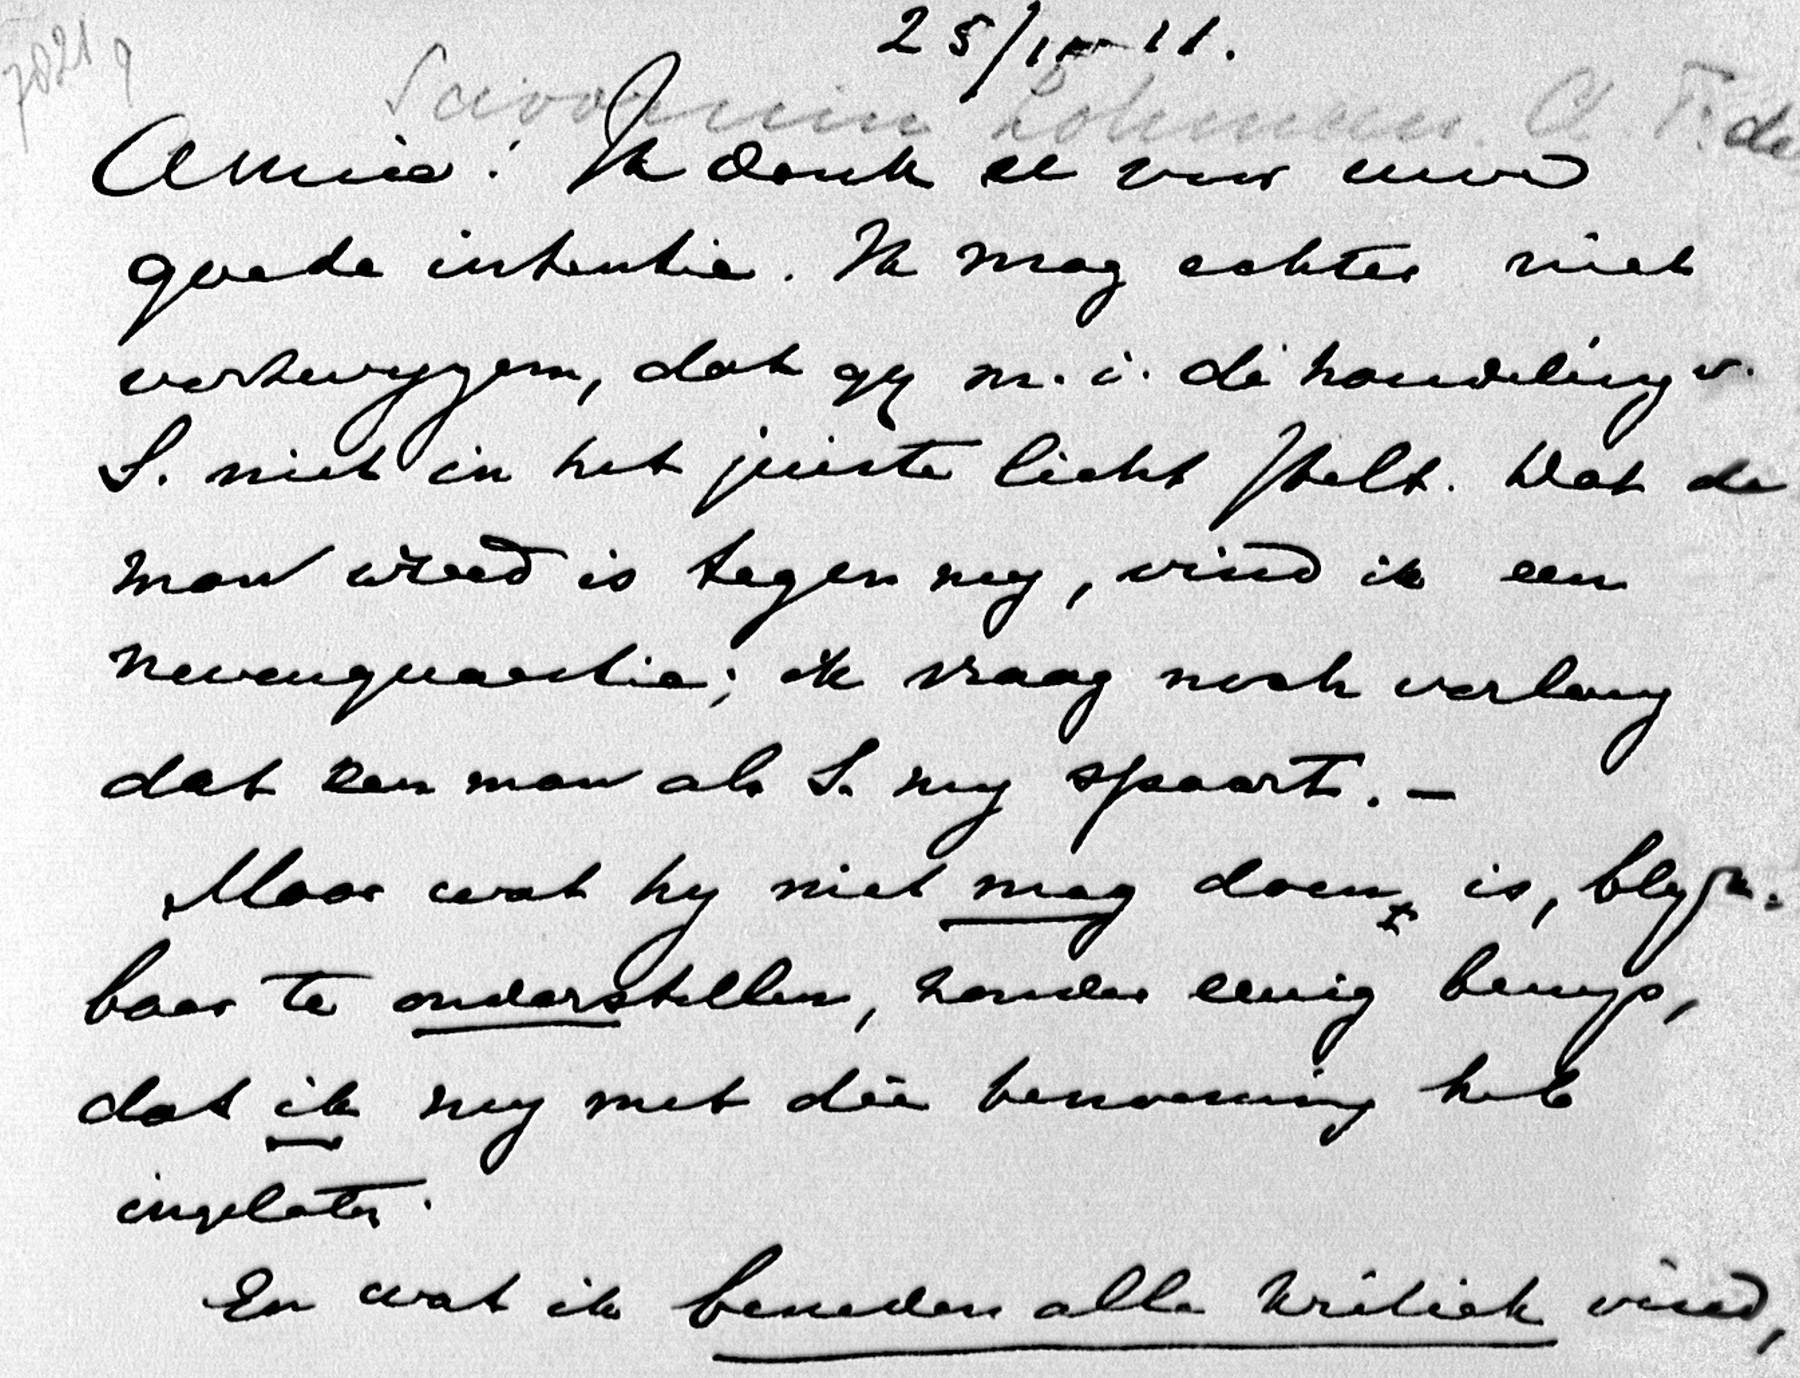 7821 9
25/IX-11.
Savornin Lohman A. F. de
Amice! Ik dank U voor uwe
goede intentie. Ik mag echter niet
verzwygen, dat gy m. i. de handeling v.
S. niet in het juiste licht stelt. Dat de
man wreed is tegen my, vind ik een
nevenquaestie; ik vraag noch verlang
dat een man als S. my spaart. –
Maar wat hy niet mag doen is, blyk-
baar te onderstellen, zonder eenig bewys,
dat ik my met die benoeming heb
ingelaten.
En wat ik beneden alle kritiek vind,